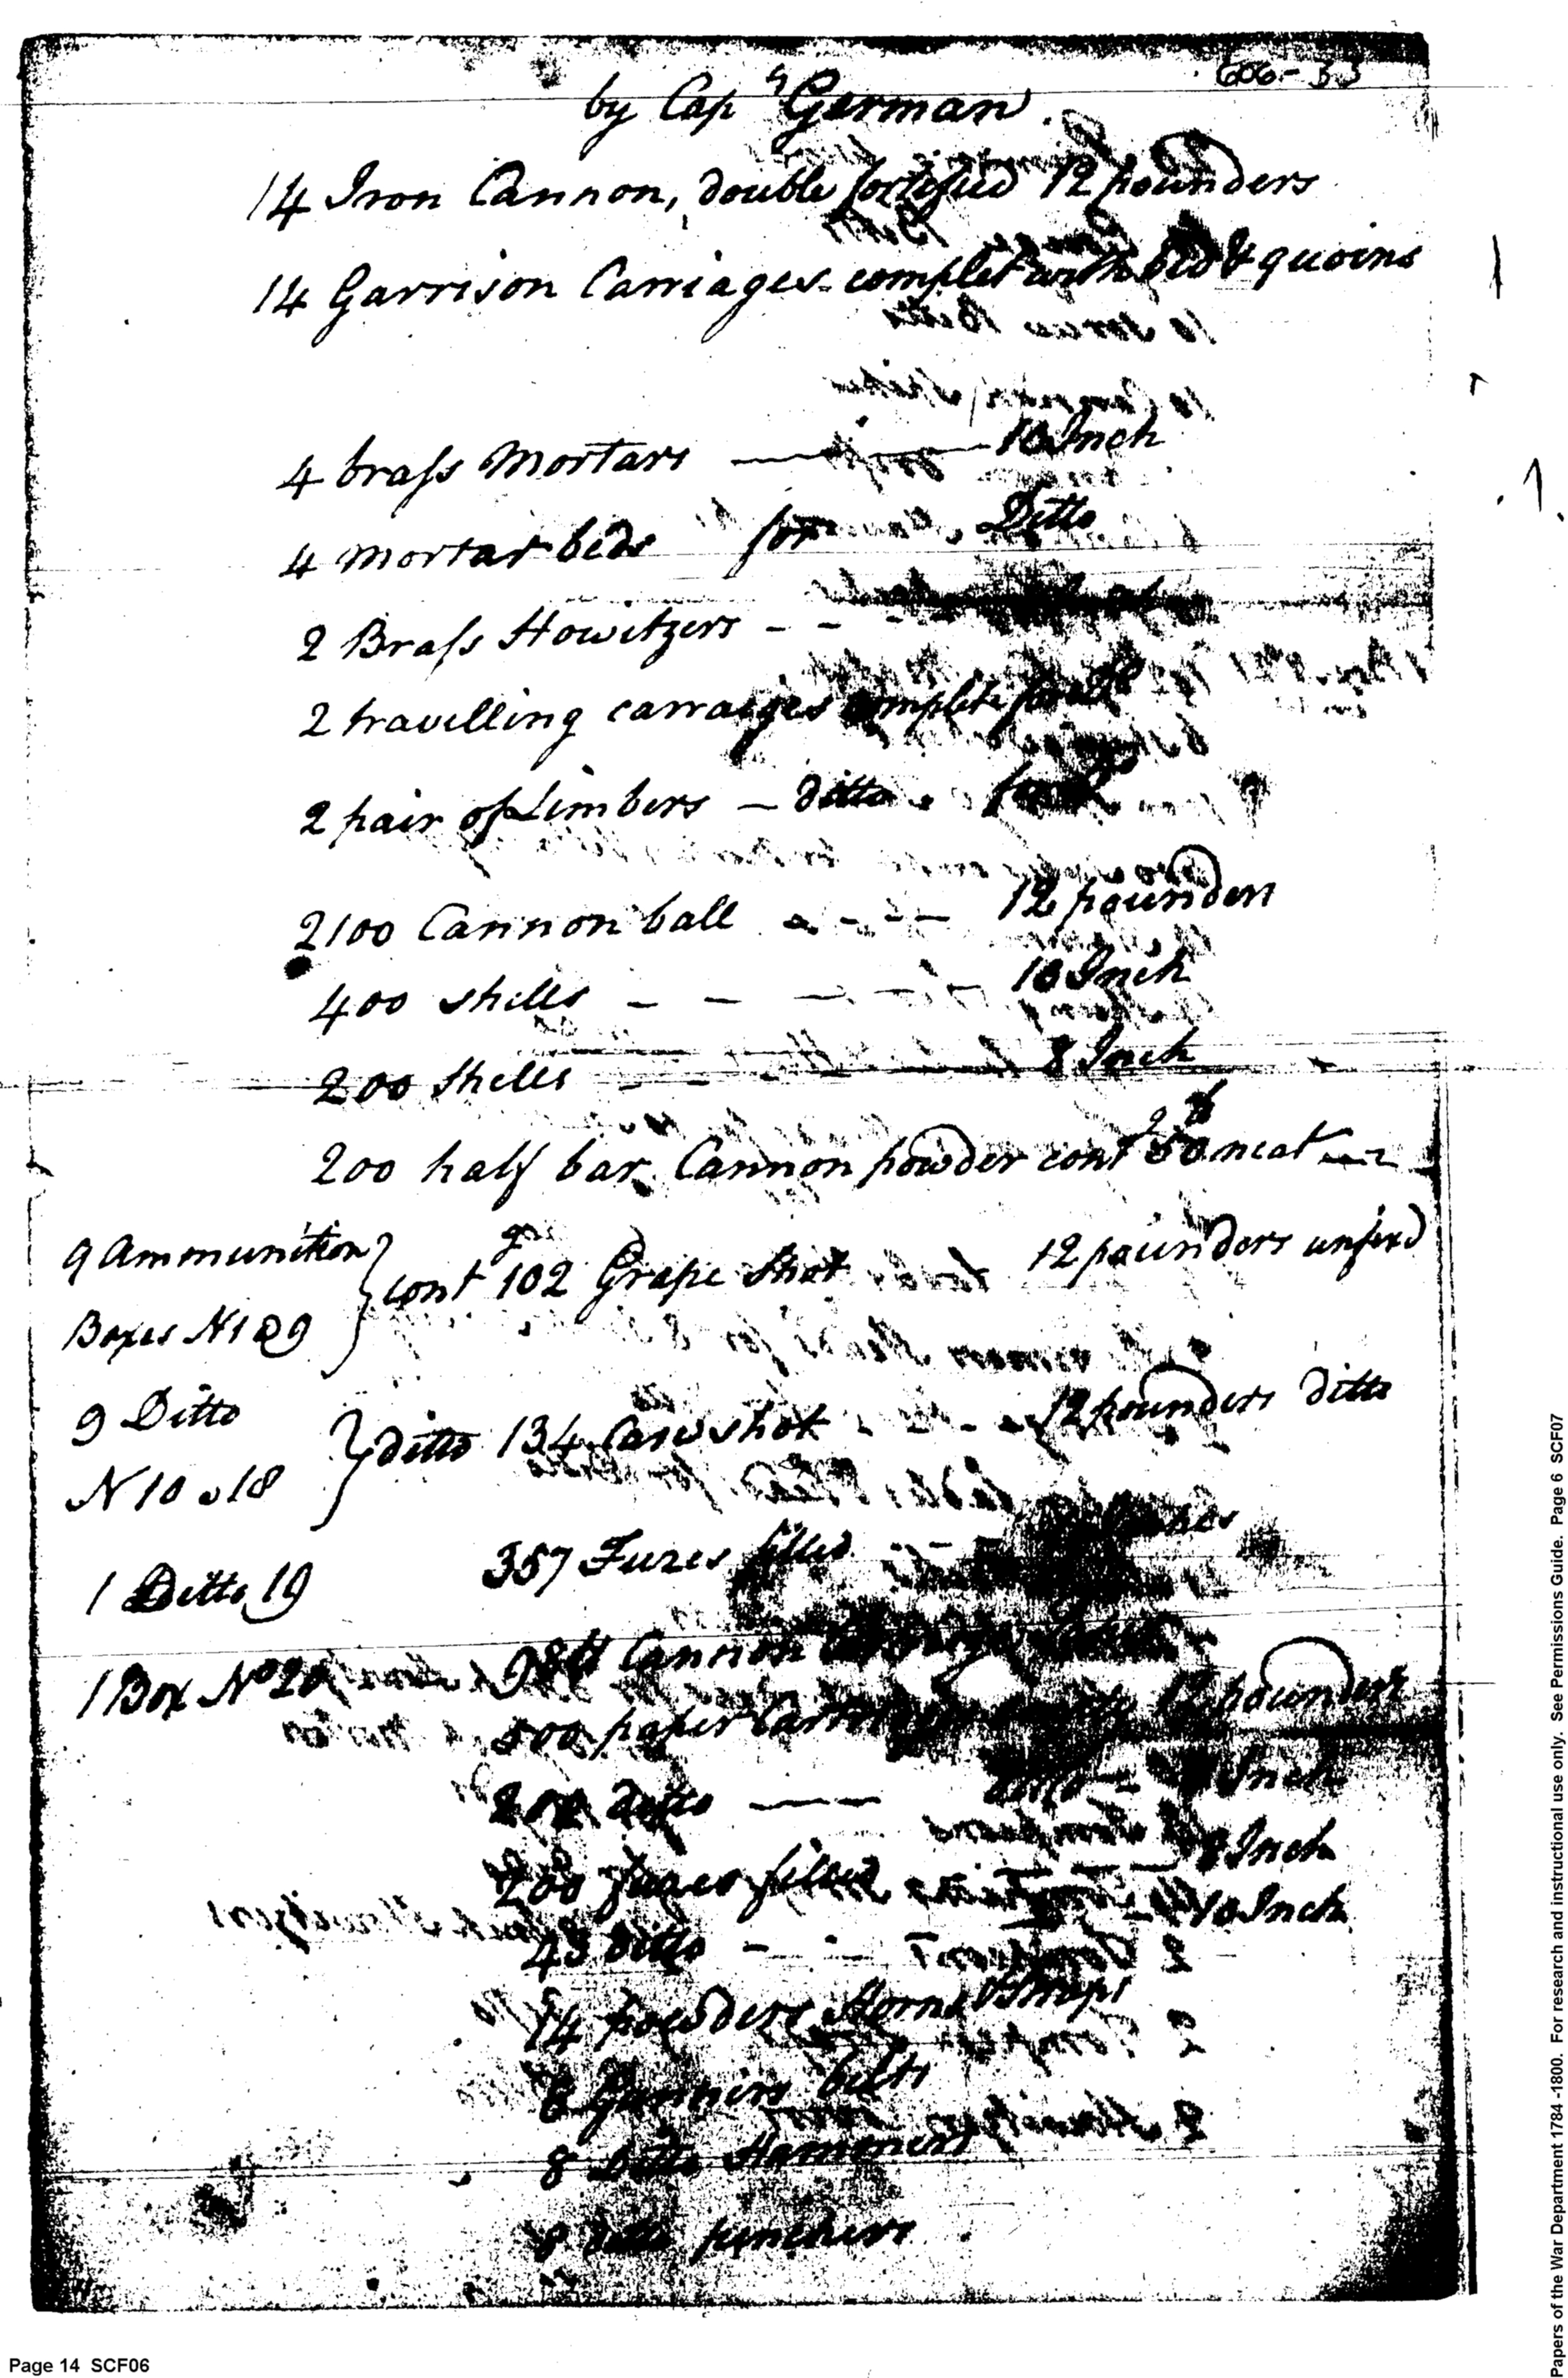 606-33
by Cap n German.
14 Iron Cannon, double fortified 12 pounders
14 Garrison Carriages complet with bed & quoins
4 brass Mortars — 10 Inch
4 mortar beds for Ditto
2 Brass Howitzers - -
2 travelling carraiges complete for
2 pair of Limbers — ditto
2100 Cannon ball - - - 12 pounders
400 shells - - - - - 10 Inch
200 Shells - - - 8 Inch
200 half bar. Cannon powder cont g 50 lb neat
9 Ammunition
Boxes N 1 @ 9
} cont g 102 Grape Shot 12 pounders unfixd
9 Ditto
N 10 a 18
} ditto 134 Case shot - - - 12 pounders ditto
1 Ditto 19 357 Fuzes filled - -
1 Box No 20 Cannon
500 paper 12 pounders
ditto — Inch
200 fuzes filled — 8 Inch
43 ditto - - - 10 Inch
14 powders Horns & Straps
8 Gunners belts
8 Ditto Hammers
8 ditto punchers
Page 14 SCF06
Papers of the War Department 1784 -1800. For research and instructional use only. See Permissions Guide. Page 6 SCF07